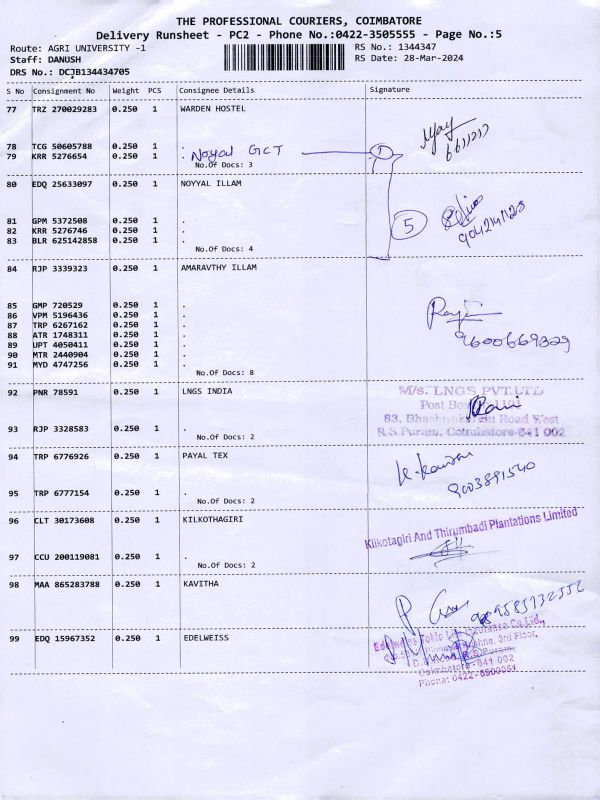 THE PROFESSIONAL COURIERS, COIMBATORE
Delivery Runsheet - PC2 - Phone No.:0422-3505555 - Page No.:5
Route: AGRI UNIVERSITY -1 RS No.: 1344347
Staff: DANUSH RS Date: 28-Mar-2024
DRS No.: DCJB134434705
S No Consignment No Weight PCS Consignee Details Signature
77 TRZ 270029283 0.250 1 WARDEN HOSTEL
78 TCG 50605788 0.250 1 .
79 KRR 5276654 0.250 1 . Noyal GCT 1
No.Of Docs: 3
80 EDQ 25633097 0.250 1 NOYYAL ILLAM
81 GPM 5372508 0.250 1 .
82 KRR 5276746 0.250 1 . 5
83 BLR 625142858 0.250 1 .
No.Of Docs: 4
84 RJP 3339323 0.250 1 AMARAVTHY ILLAM
85 GMP 720529 0.250 1 .
86 VPM 5196436 0.250 1 .
87 TRP 6267162 0.250 1 .
88 ATR 1748311 0.250 1 .
89 UPT 4050411 0.250 1 .
90 MTR 2440904 0.250 1 .
91 MYD 4747256 0.250 1 .
9600669329
No.Of Docs: 8
92 PNR 78591 0.250 1 LNGS INDIA
M/s. LNGS PVT.LTD
Post Box
83, Road West
R.S.Puram, Coimbatore-641 002
93 RJP 3328583 0.250 1 .
No.Of Docs: 2
94 TRP 6776926 0.250 1 PAYAL TEX
9003891540
95 TRP 6777154 0.250 1 .
No.Of Docs: 2
96 CLT 30173608 0.250 1 KILKOTHAGIRI
Kilkotagiri And Thirumbadi Plantations Limited
97 CCU 200119081 0.250 1 .
No.Of Docs: 2
98 MAA 865283788 0.250 1 KAVITHA
99 EDQ 15967352 0.250 1 EDELWEISS
3rd Floor,
Coimbatore - 641 002
Phone: 0422-6500051